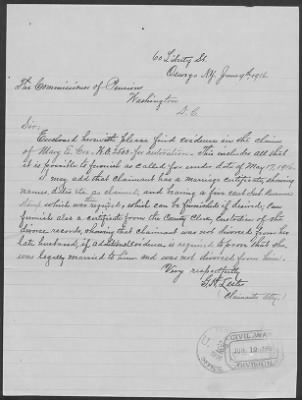 60 Liberty St.
Oswego N.Y. June 9th 1916
The Commissioner of Pensions
Washington
D.C.
Sir:
Enclosed herewith please find evidence in the claim
of Mary E. Cox. for restoration. This includes all that
it is possible to furnish as called for under date of May 17, 1916.
I may add that claimant has a marriage certificate, showing
names, dates etc as claimed, and having a five cent Int. Revenue
stamp which was then required, which can be furnished if desired. Can
furnish also a certificate from the County Clerk, Custodian of the
divorce records, showing that claimant was not divorced from her
late husband, if additional evidence is required to prove that she
was legally married to him and was not divorced from him.
Very respectfully
Claimants Atty.
CIVIL WAR
JUN 10
DIVISION